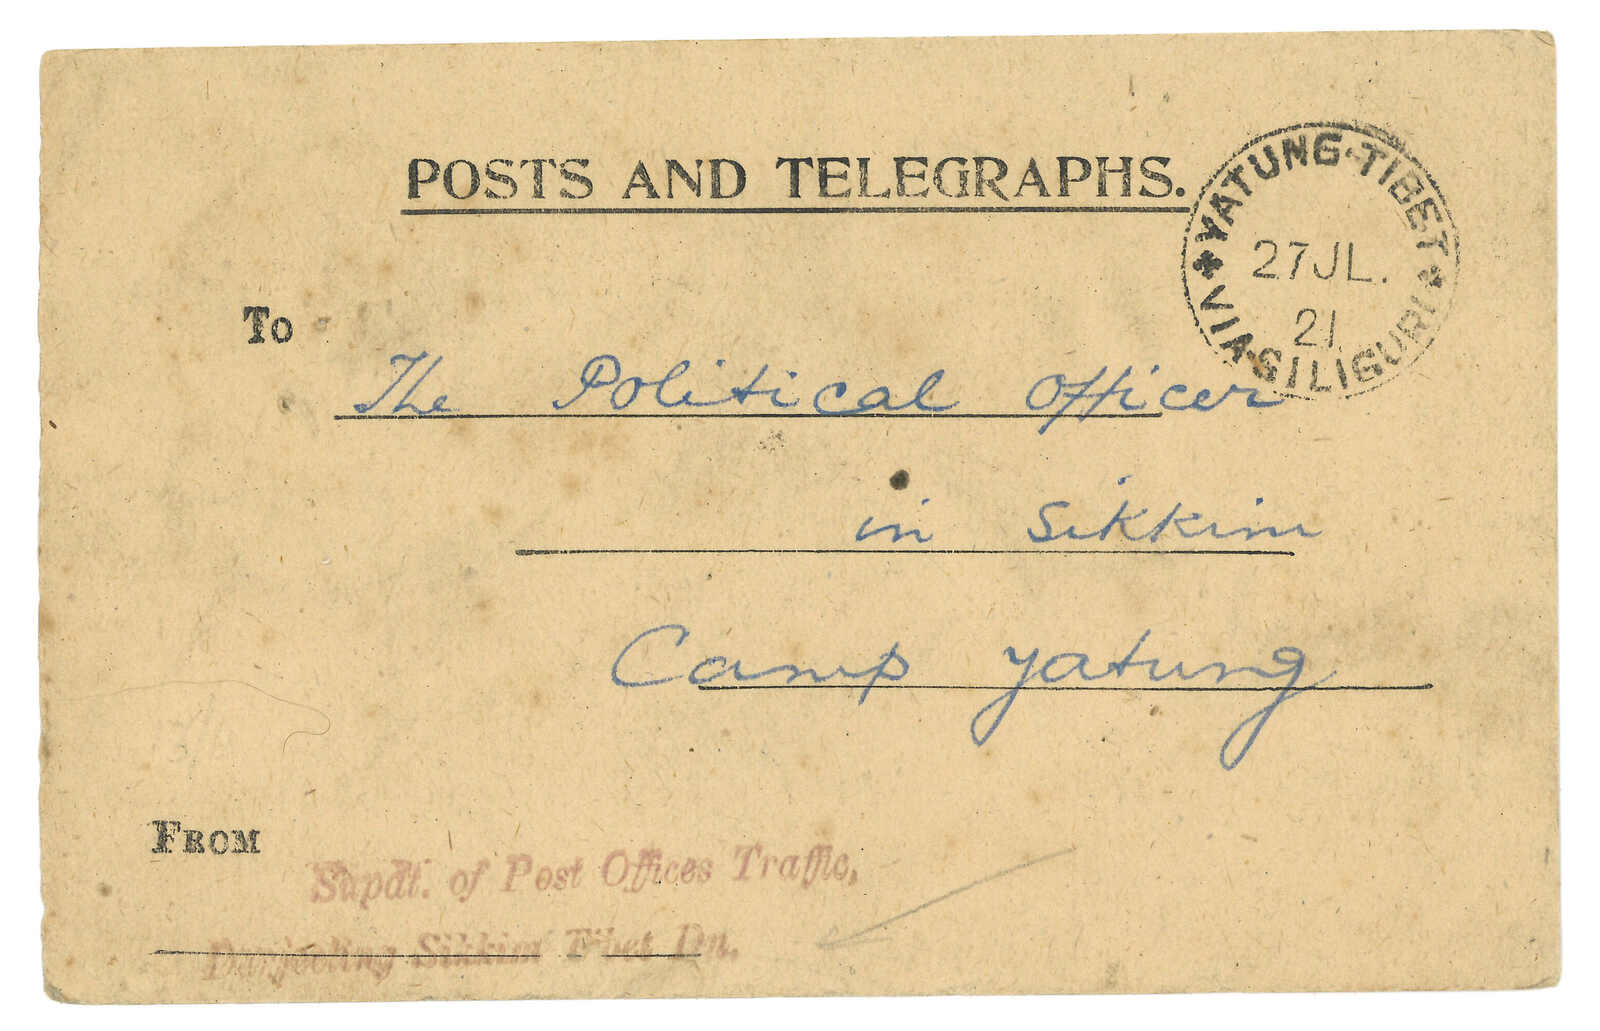 POSTS AND TELEGRAPHS.
YATUNG·TIBET
27 JL.
21
VIA·SILIGURI
To
The Political Officer
in Sikkim
Camp Yatung
FROM
Supdt. of Post Offices Traffic,
Darjeeling Sikkim Tibet Dn.